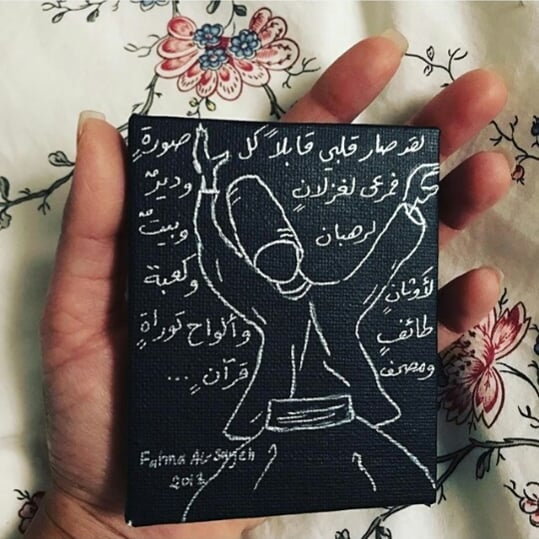 لقد صار قلبي قابلاً كل صورةٍ
فمرعى لغزلانٍ وديرٌ
لرهبان وبيتٌ
لأوثانٍ وكعبة
طائفٍ وألواح توراةٍ
ومصحف قرآنٍ ...
Fatma Al-Sayeh
2013